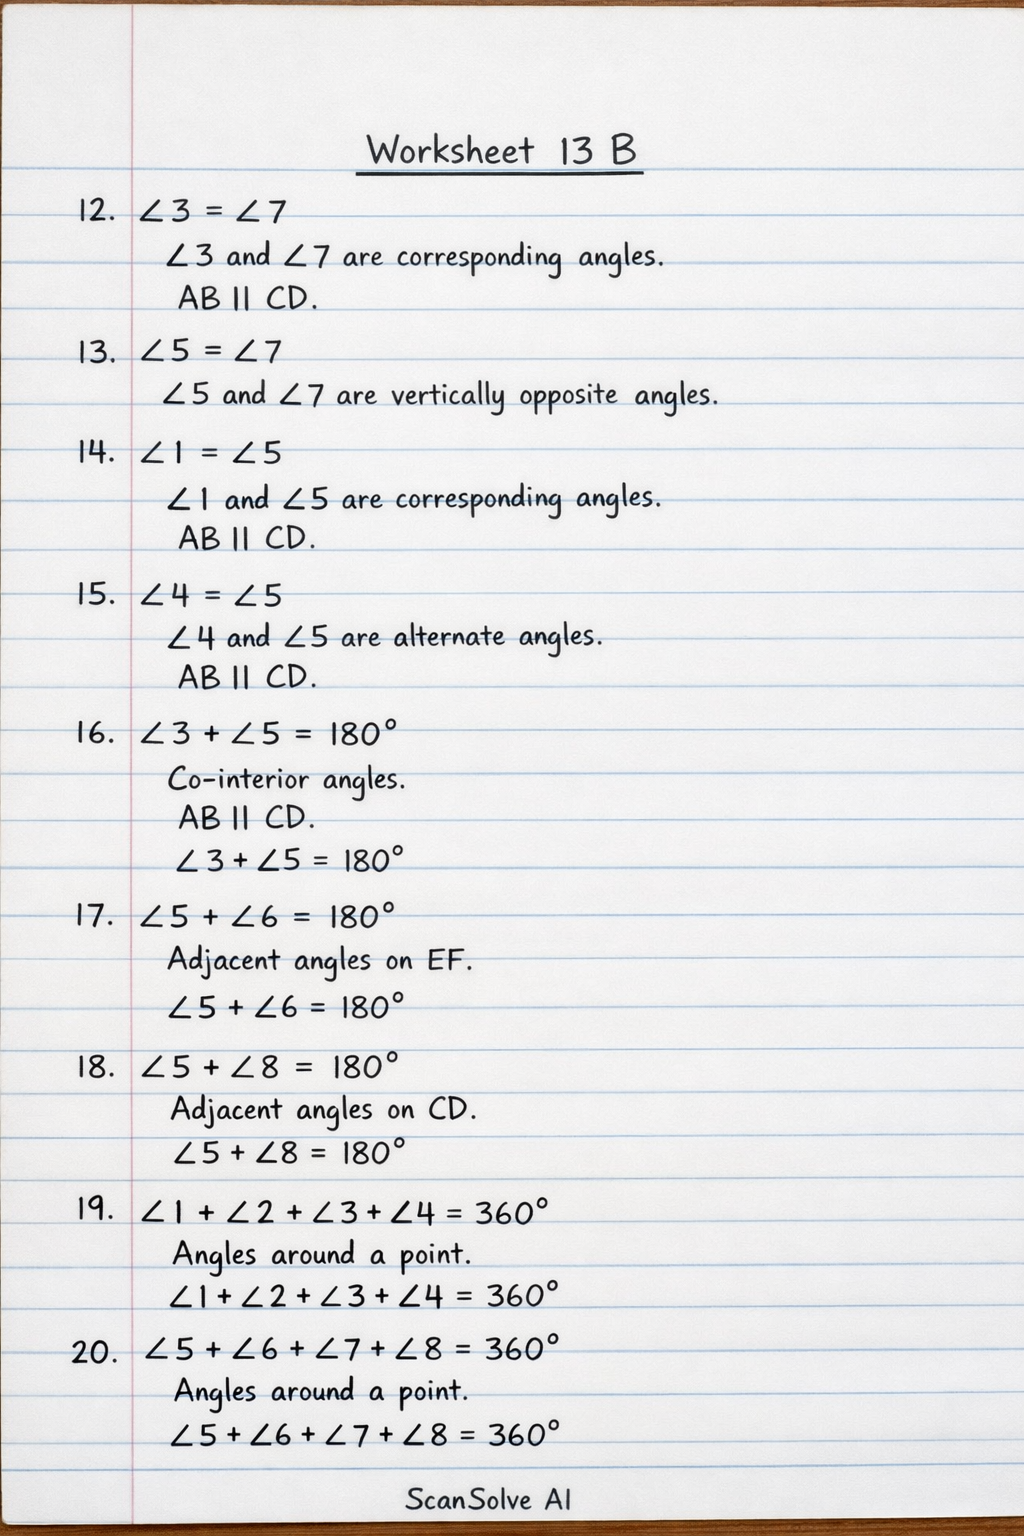 Worksheet 13 B
12. ∠3 = ∠7
∠3 and ∠7 are corresponding angles.
AB || CD.
13. ∠5 = ∠7
∠5 and ∠7 are vertically opposite angles.
14. ∠1 = ∠5
∠1 and ∠5 are corresponding angles.
AB || CD.
15. ∠4 = ∠5
∠4 and ∠5 are alternate angles.
AB || CD.
16. ∠3 + ∠5 = 180°
Co-interior angles.
AB || CD.
∠3 + ∠5 = 180°
17. ∠5 + ∠6 = 180°
Adjacent angles on EF.
∠5 + ∠6 = 180°
18. ∠5 + ∠8 = 180°
Adjacent angles on CD.
∠5 + ∠8 = 180°
19. ∠1 + ∠2 + ∠3 + ∠4 = 360°
Angles around a point.
∠1 + ∠2 + ∠3 + ∠4 = 360°
20. ∠5 + ∠6 + ∠7 + ∠8 = 360°
Angles around a point.
∠5 + ∠6 + ∠7 + ∠8 = 360°
ScanSolve AI